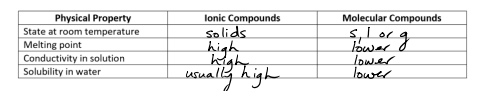 Physical Property Ionic Compounds Molecular Compounds
State at room temperature solids s, l or g
Melting point high lower
Conductivity in solution high lower
Solubility in water usually high lower